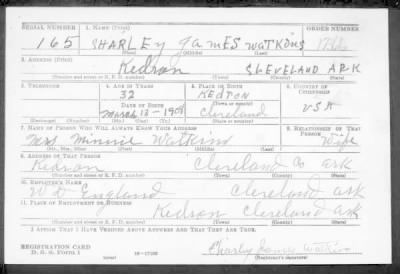 SERIAL NUMBER 1. NAME (Print) ORDER NUMBER
165 SHARLEY JAMES WATKINS
(First) (Middle) (Last)
2. ADDRESS (Print)
Kedron CLEVELAND ARK
(Number and street or R. F. D. number) (Town) (County) (State)
3. TELEPHONE 4. AGE IN YEARS 5. PLACE OF BIRTH 6. COUNTRY OF CITIZENSHIP
32 KEDRON
DATE OF BIRTH (Town or county)
March 13-1908 Cleveland USA
(Exchange) (Number) (Mo.) (Day) (Yr.) (State or country)
7. NAME OF PERSON WHO WILL ALWAYS KNOW YOUR ADDRESS 8. RELATIONSHIP OF THAT PERSON
Mrs Minnie Watkins Wife
(Mr., Mrs., Miss) (First) (Middle) (Last)
9. ADDRESS OF THAT PERSON
Kedron Cleveland Co ark
(Number and street or R. F. D. number) (Town) (County) (State)
10. EMPLOYER'S NAME
W D England Cleveland ark
11. PLACE OF EMPLOYMENT OR BUSINESS
Kedron Cleveland ark
(Number and street or R. F. D. number) (Town) (County) (State)
I AFFIRM THAT I HAVE VERIFIED ABOVE ANSWERS AND THAT THEY ARE TRUE.
REGISTRATION CARD
D. S. S. FORM 1 16-17105 Charly James Watkins
(over) (Registrant's signature)